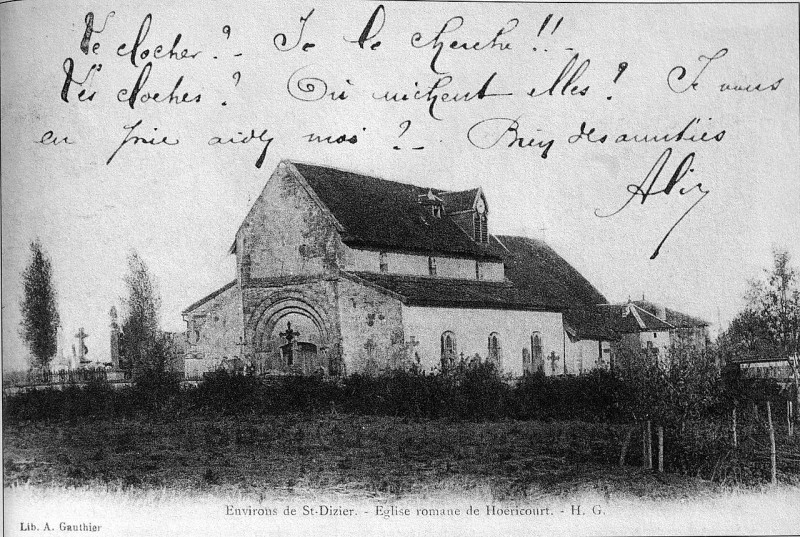 Le clocher ? - Je le cherche !! -
Les cloches ? Où nichent elles ? Je vous
en prie aidez moi ? - Bien des amitiés
Alix
Environs de St-Dizier. - Eglise romane de Hoéricourt. - H. G.
Lib. A. Gauthier